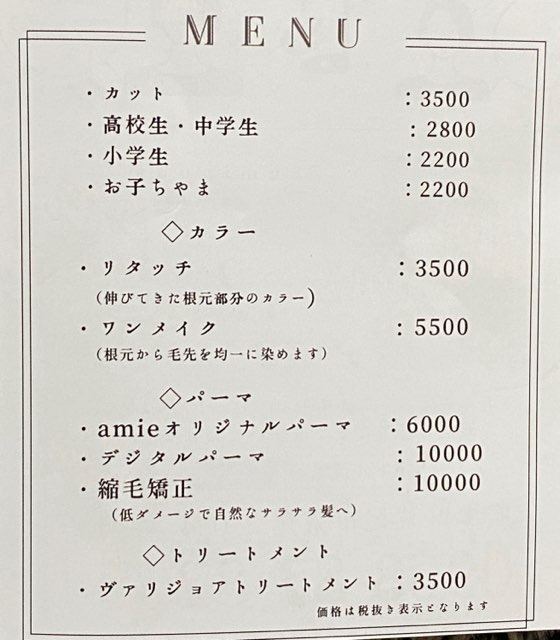 MENU
・カット ：3500
・高校生・中学生 ：2800
・小学生 ：2200
・お子ちゃま ：2200
◇カラー
・リタッチ ：3500
（伸びてきた根元部分のカラー）
・ワンメイク ：5500
（根元から毛先を均一に染めます）
◇パーマ
・amieオリジナルパーマ ：6000
・デジタルパーマ ：10000
・縮毛矯正 ：10000
（低ダメージで自然なサラサラ髪へ）
◇トリートメント
・ヴァリジョアトリートメント ：3500
価格は税抜き表示となります